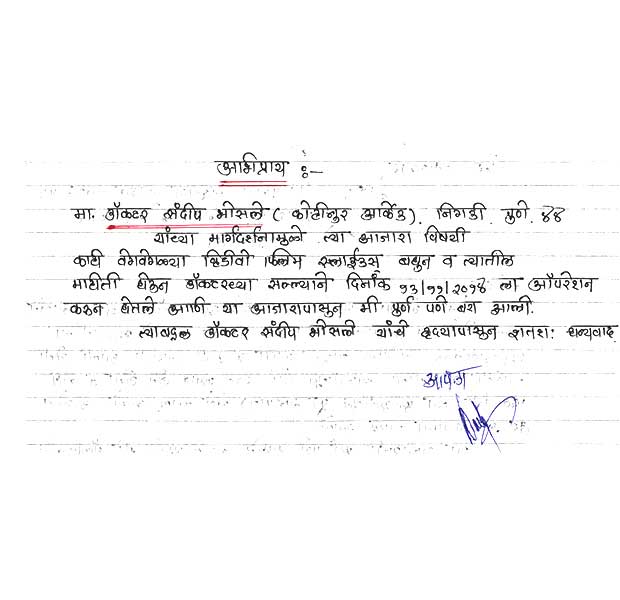 अभिप्राय :-
मा. डॉक्टर संदीप भोसले ( कोहीनुर आर्केड ). निगडी पुणे. ४४
यांच्या मार्गदर्शनामुळे त्या आजारा विषयी
काही वेगवेगळ्या व्हिडीवी फिल्म स्लाईडस् बघुन व त्यातील
माहीती घेऊन डॉक्टरच्या सल्ल्याने दिनांक १३/११/२०१४ ला ऑपरेशन
करून घेतले आणि या आजारापासुन मी पुर्ण पणे बरा आलो.
त्याबद्दल डॉक्टर संदीप भोसले यांचे हृदयापासुन शतशः धन्यवाद
आपला